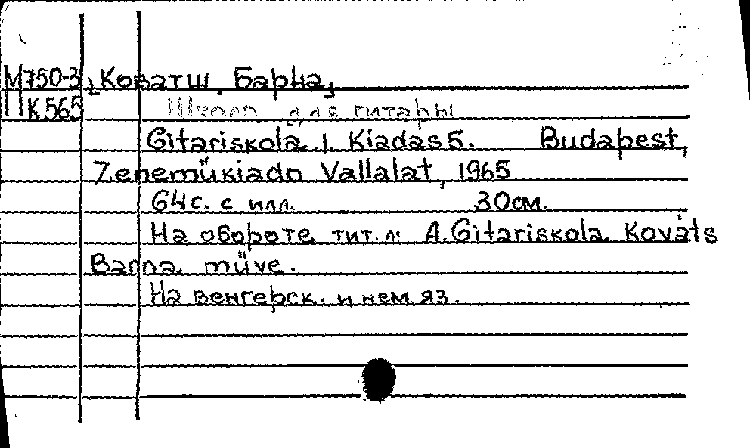 М750-3 Коватш, Барна,
П К565 Школа для гитары
Gitariskola. 1. Kiadas 5. Budapest,
Zenemükiado Vallalat, 1965
64с. с илл. 30см.
На обороте тит. л: A.Gitariskola. Kováts
Barna müve.
На венгерск. и нем яз.